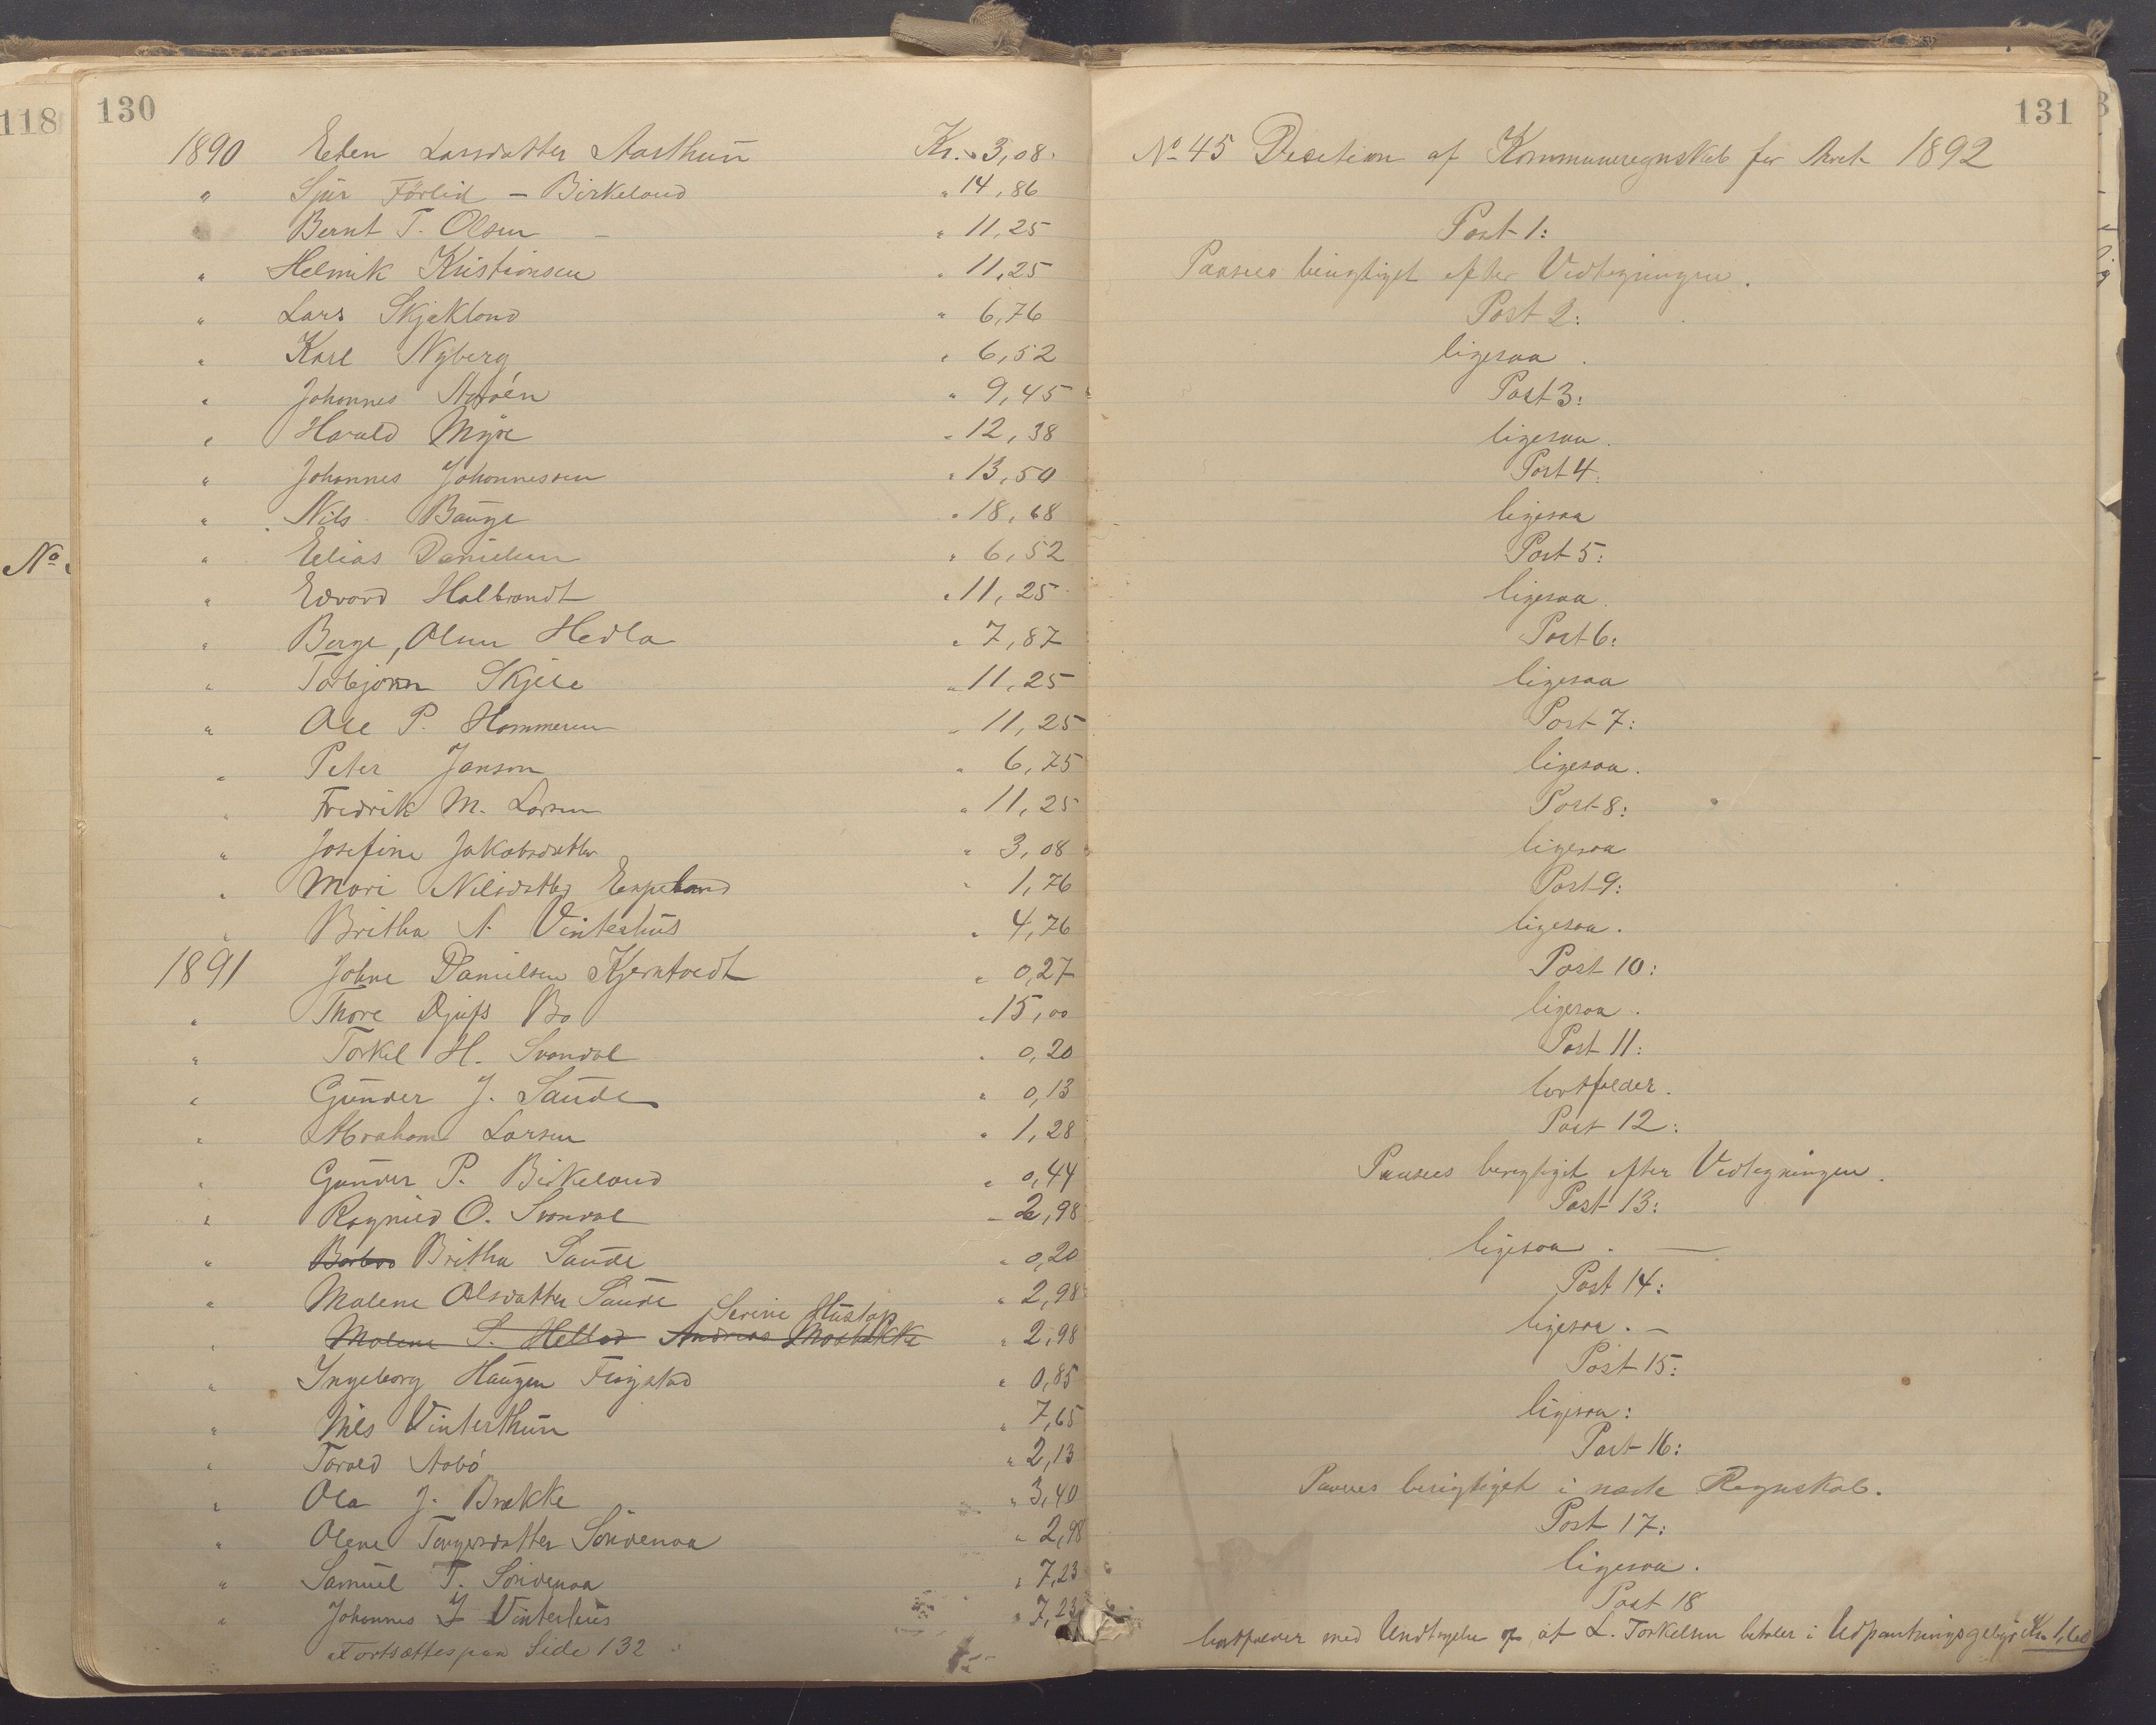 118
No
130
1890 Eelen Larsdatter Aarthun Kr. 3,08
" Sjur Förlid - Birkeland " 14,86
Bernt T. Olsen - " 11,25
" Helmik Kristiansen " 11,25
" Lars Skjekland " 6,76
" Karl Nyberg " 6,52
" Johannes " 9,45
" Harald Myre " 12,38
" Johannes Johannessen " 13,50
" Nils Bauge " 18,68
" Elias Danielsen " 6,52
" Edvard Halbrandt " 11,25
" Berge, Olsen Hedla " 7,87
" Torbjörn Skjele " 11,25
" Ole P. Hammeren " 11,25
" Peter Janson " 6,75
" Fredrik M. Larsen " 11,25
" Josefine Jakobsdatter " 3,08
" Mari Nilsdatter Espeland " 1,76
" Britha N. Vinterhus " 4,76
1891 Johne Danielsen Kjerntvedt " 0,27
" Thore Djufs Bø " 15,00
" Torkel H. Svandal " 0,20
" Gunder J. Saude " 0,13
" Abraham Larsen " 1,28
" Gunder P. Birkeland " 0,44
" Ragnild O. Svandal " 2,98
" Barbro Britha Saude " 0,20
" Malene Olsdatter Saude " 2,98
Serine Hustap
" Malene S. Hellar Andreas " 2,98
" Ingeborg Haugen Fisystad " 0,85
" Nils Vinterthun " 7,65
" Torald Aabö " 2,13
" Ola J. Brekke " 3,40
" Olene Torgersdatter Söndenaa " 2,98
" Samuel T. Söndenaa " 7,23
" Johannes J Vinterhus " 7,23
Fortsættes paa Side 132
131
No 45 Desition af Kommuneregnskab for Aaret 1892
Post 1:
Paasees berigtiget efter Vedtegningen.
Post 2:
ligesaa.
Post 3:
ligesaa.
Post 4.
ligesaa
Post 5:
ligesaa.
Post 6:
ligesaa
Post 7:
ligesaa.
Post 8:
ligesaa
Post 9:
ligesaa.
Post 10:
ligesaa.
Post 11:
bortfalder.
Post 12:
Paasees berigtiget efter Vedtegningen.
Post 13:
ligesaa. —
Post 14:
ligesaa. —
Post 15:
ligesaa:
Post 16:
Paasees berigtiget i næste Regnskab.
Post 17:
ligesaa.
Post 18
bortfalder med Undtagelse af, at L. Torkelsen betaler i Udpantningsgebyr Kr. 1,60